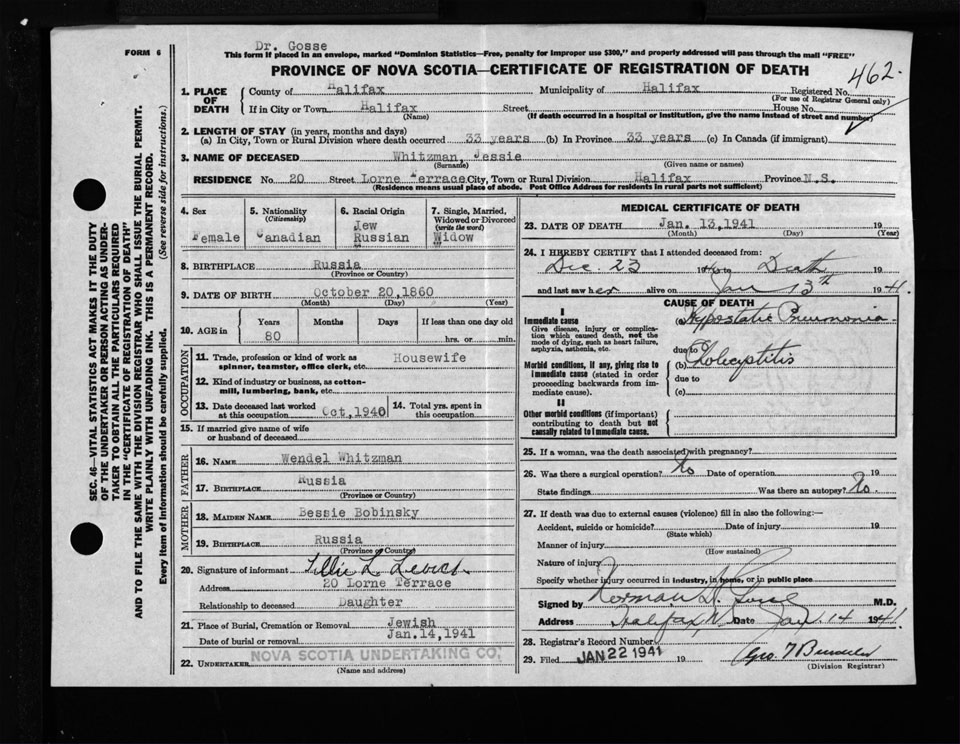 FORM 6
Dr. Gosse
This form if placed in an envelope, marked "Dominion Statistics—Free, penalty for improper use $300," and properly addressed will pass through the mail "FREE"
PROVINCE OF NOVA SCOTIA—CERTIFICATE OF REGISTRATION OF DEATH
462.
SEC. 46—VITAL STATISTICS ACT MAKES IT THE DUTY
OF THE UNDERTAKER OR PERSON ACTING AS UNDER-
TAKER TO OBTAIN ALL THE PARTICULARS REQUIRED
IN THE "CERTIFICATE OF REGISTRATION OF DEATH"
AND TO FILE THE SAME WITH THE DIVISION REGISTRAR WHO SHALL ISSUE THE BURIAL PERMIT.
WRITE PLAINLY WITH UNFADING INK. THIS IS A PERMANENT RECORD.
Every item of Information should be carefully supplied. (See reverse side for instructions.)
1. PLACE OF DEATH
County of Halifax Municipality of Halifax Registered No.
(For use of Registrar General only)
If in City or Town Halifax Street House No.
(Name) (If death occurred in a hospital or institution, give the name instead of street and number)
2. LENGTH OF STAY (in years, months and days)
(a) In City, Town or Rural Division where death occurred 33 years (b) In Province 33 years (c) In Canada (if immigrant)
3. NAME OF DECEASED Whitzman, Jessie
(Surname) (Given name or names)
RESIDENCE No. 20 Street Lorne Terrace City, Town or Rural Division Halifax Province N.S.
(Residence means usual place of abode. Post Office Address for residents in rural parts not sufficient)
4. Sex
Female
5. Nationality
(Citizenship)
Canadian
6. Racial Origin
Jew
Russian
7. Single, Married,
Widowed or Divorced
(write the word)
Widow
8. BIRTHPLACE Russia
(Province or Country)
9. DATE OF BIRTH October 20,1860
(Month) (Day) (Year)
10. AGE in
Years Months Days If less than one day old
80 hrs. or min.
OCCUPATION
11. Trade, profession or kind of work as Housewife
spinner, teamster, office clerk, etc.
12. Kind of industry or business, as cotton-
mill, lumbering, bank, etc.
13. Date deceased last worked
at this occupation Oct,1940
14. Total yrs. spent in
this occupation
15. If married give name of wife
or husband of deceased
FATHER
16. NAME Wendel Whitzman
17. BIRTHPLACE Russia
(Province or Country)
MOTHER
18. MAIDEN NAME Bessie Bobinsky
19. BIRTHPLACE Russia
(Province or Country)
20. Signature of informant Tillie L.
Address 20 Lorne Terrace
Relationship to deceased Daughter
21. Place of Burial, Cremation or Removal Jewish
Date of burial or removal Jan.14,1941
22. UNDERTAKER NOVA SCOTIA UNDERTAKING CO.
(Name and address)
MEDICAL CERTIFICATE OF DEATH
23. DATE OF DEATH Jan. 13,1941 19
(Month) (Day) (Year)
24. I HEREBY CERTIFY that I attended deceased from:
Dec. 23 1940 to Death 19
and last saw her alive on Jan 13th 1941.
CAUSE OF DEATH
I
Immediate cause
Give disease, injury or complica-
tion which caused death, not the
mode of dying, such as heart failure,
asphyxia, asthenia, etc.
(a) Hypostatic Pneumonia
due to
Morbid conditions, if any, giving rise to
immediate cause (stated in order
proceeding backwards from im-
mediate cause).
(b) Cholecystitis
due to
(c)
II
Other morbid conditions (if important)
contributing to death but not
causally related to immediate cause.
25. If a woman, was the death associated with pregnancy?
26. Was there a surgical operation? No Date of operation 19
State findings Was there an autopsy? No.
27. If death was due to external causes (violence) fill in also the following:—
Accident, suicide or homicide? Date of injury 19
(State which)
Manner of injury
(How sustained)
Nature of injury
Specify whether injury occurred in industry, in home, or in public place
Signed by Norman H. Gosse M.D.
Address Halifax, N.S. Date Jan. 14 1941.
28. Registrar's Record Number
29. Filed JAN 22 1941 19 Geo. T
(Division Registrar)